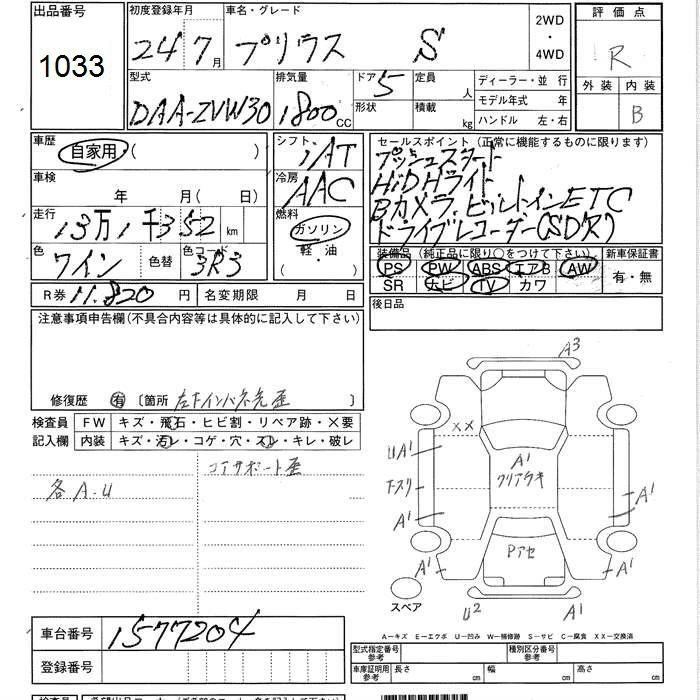 出品番号 初度登録年月 車名・グレード 2WD・4WD 評価点
1033 24 7月 プリウス S R
型式 排気量 ドア 5 定員 人 ディーラー・並 行 外装 内装
DAA-ZVW30 1800cc 形状 積載 kg モデル年式 年 B
ハンドル 左・右
車歴 自家用 ( ) シフト iAT セールスポイント (正常に機能するものに限ります)
プッシュスタート
車検 年 月 ( 日) 冷房 AAC HiDHライト
Bカメラ、ビルトインETC
走行 13万1千352km 燃料 ガソリン ドライブレコーダー(SD欠)
色 ワイン 色替 色コード 3R3 軽・油 ( ・ ) 装備品 (純正品に限り○をつけて下さい) 新車保証書
PS PW ABS エアB AW 有・無
SR ナビ TV カワ
R券 11.820円 名変期限 月 日 後日品
注意事項申告欄(不具合内容等は具体的に記入して下さい)
修復歴 有 〔箇所 左下インパネ先歪 〕
検査員 FW キズ・飛石・ヒビ割・リペア跡・×要
記入欄 内装 キズ・汚レ・コゲ・穴・スレ・キレ・破レ
各A.U コアサポート歪
A3
XX
UA1
A1
クリアラキ
A1
A1
Pアセ
A1
A1
スペア
U2 A1
A―キズ E―エクボ U―凹み W―補修跡 S―サビ C―腐食 XX―交換済
車台番号 1577204
登録番号
型式指定番号 参考 種別区分番号 参考
車庫証明用 参考 長さ cm 幅 cm 高さ cm